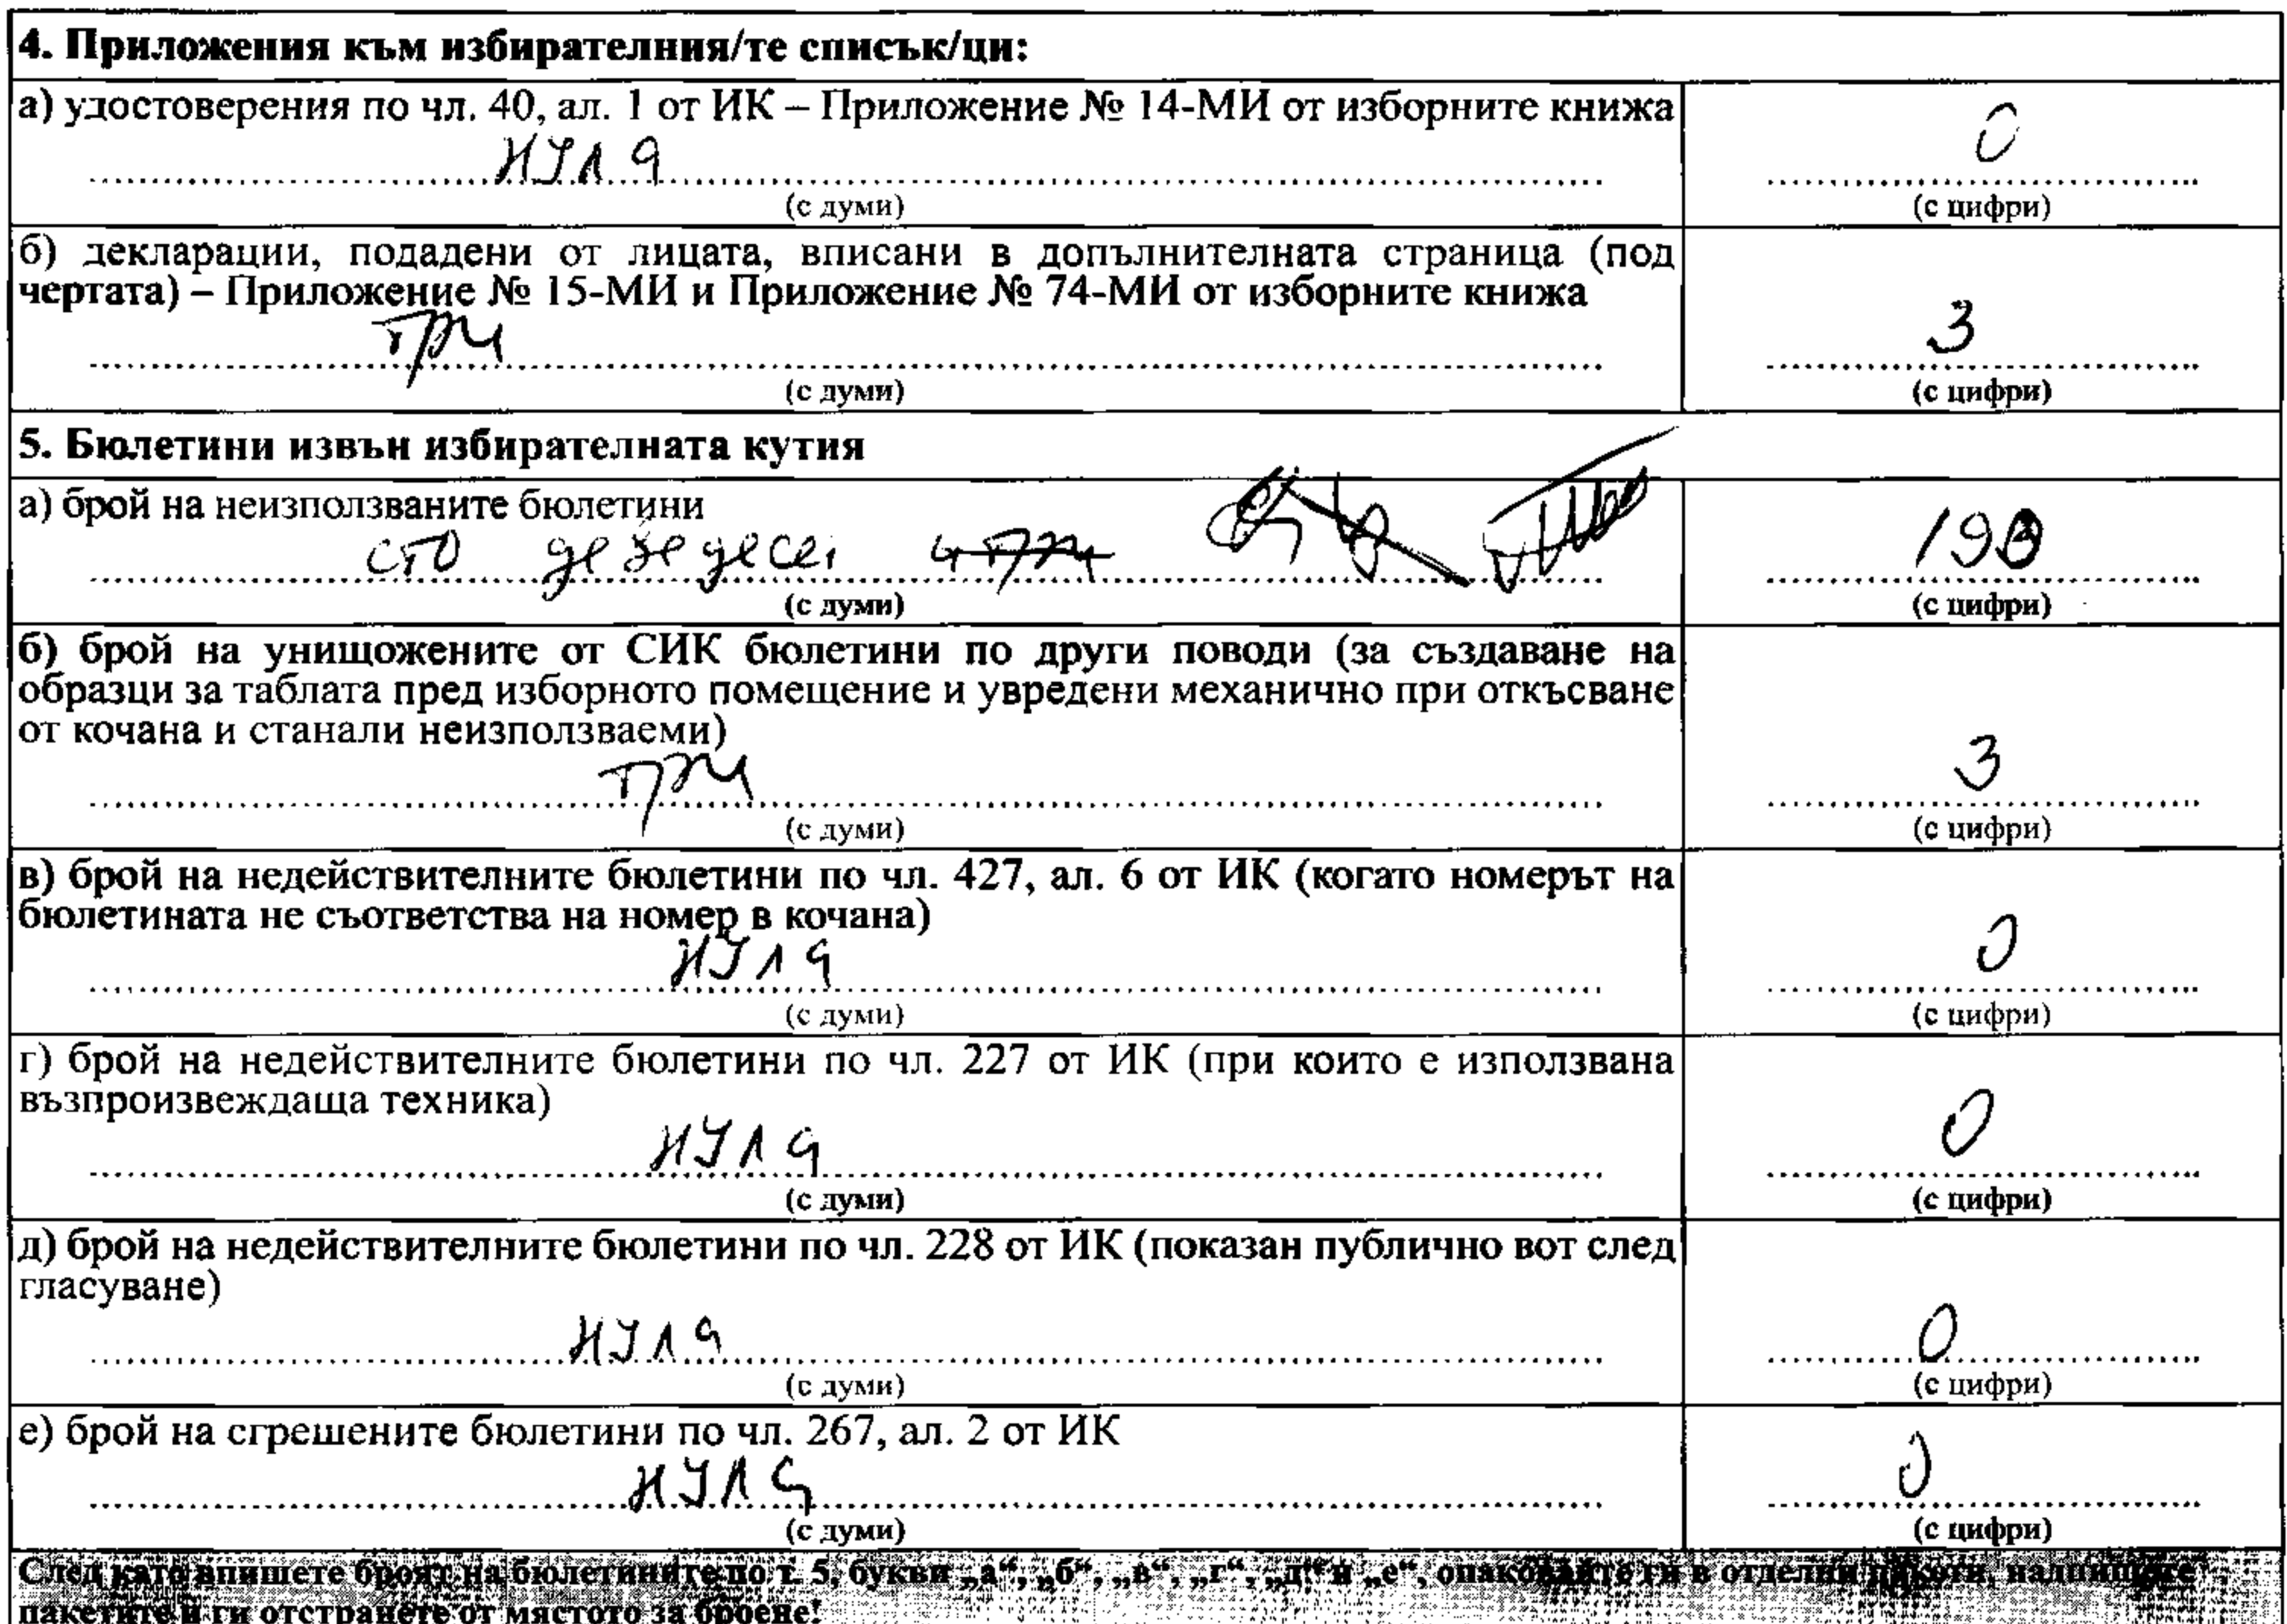 4. Приложения към избирателния/те списък/ци:
а) удостоверения по чл. 40, ал. 1 от ИК – Приложение № 14-МИ от изборните книжа
нуля
0
(с думи)
(с цифри)
б) декларации, подадени от лицата, вписани в допълнителната страница (под
чертата) – Приложение № 15-МИ и Приложение № 74-МИ от изборните книжа
три
3
(с думи)
(с цифри)
5. Бюлетини извън избирателната кутия
а) брой на неизползваните бюлетини
сто деведесет и три
(с думи)
(с цифри)
б) брой на унищожените от СИК бюлетини по други поводи (за създаване на
образци за таблата пред изборното помещение и увредени механично при откъсване
от кочана и станали неизползваеми)
три
3
(с думи)
(с цифри)
в) брой на недействителните бюлетини по чл. 427, ал. 6 от ИК (когато номерът на
бюлетината не съответства на номер в кочана)
нуля
0
(с думи)
(с цифри)
г) брой на недействителните бюлетини по чл. 227 от ИК (при които е използвана
възпроизвеждаща техника)
нуля
0
(с думи)
(с цифри)
д) брой на недействителните бюлетини по чл. 228 от ИК (показан публично вот след
гласуване)
нуля
0
(с думи)
(с цифри)
е) брой на сгрешените бюлетини по чл. 267, ал. 2 от ИК
нуля
0
(с думи)
(с цифри)
След като впишете броят на бюлетините по т. 5, букви „а“, „б“, „в“, „г“, „д“ и „е“, опаковайте ги в отделни пакети, надпишете
пакетите и ги отстранете от мястото за броене!